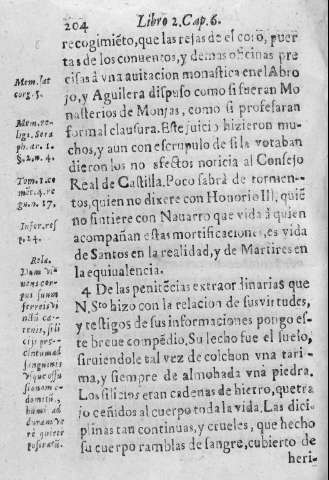 204
Libro 2. Cap. 6.
recogimiẽto, que las rejas de el coro, puer
tas de los conuentos, y demas oficinas pre
cisas à vna auitacion monastica en el Abro
jo, y Aguilera dispuso como si fueran Mo
nasterios de Monjas, como si profesaran
formal clausura. Este juicio hizieron mu-
chos, y aun con escrupulo de si la votaban
dieron los no afectos noticia al Consejo
Real de Castilla. Poco sabrà de tormen-
tos, quien no dixere con Honorio III, quiẽ
no sintiere con Nauarro que vida à quien
acompañan estas mortificaciones, es vida
de Santos en la realidad, y de Martires en
la equiualencia.
4 De las penitẽcias extraordinarias que
N. Sto hizo con la relacion de sus virtudes,
y testigos de sus informaciones pongo es-
te breue compẽdio, Su lecho fue el suelo,
siruiendole tal vez de colchon vna tari-
ma, y siempre de almohada vna piedra.
Los silicios eran cadenas de hierro, que tra
jo ceñidos al cuerpo toda la vida. Las dici-
plinas tan continuas, y crueles, que hecho
su cuerpo ramblas de sangre, cubierto de
heri-
Mem. lat
corg. 5.
Mem. re-
ligs. Sera
ph. ar. 1.
§. 2. n. 4.
Tom. 1. co
ment. 4. re
gu. n. 17.
Infor. res
p. 24.
Rela.
Dum vi-
uens cor-
pus suum
ferreis vi
nctũ ca-
tenis, sili
cijs præ-
cintum ad
sanguinis
vsque effu
sionem e-
domitũ,
humi ad
duram ve
rè quiete